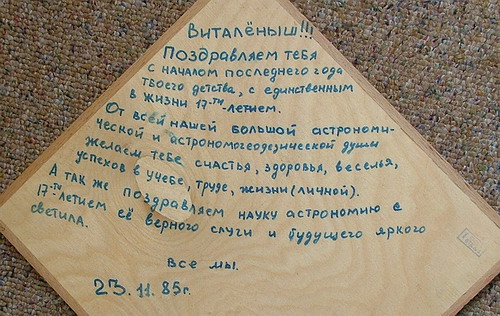 Виталёныш!!!
Поздравляем тебя
с началом последнего года
твоего детства, с единственным
в жизни 17-ти-летием.
От всей нашей большой астрономи-
ческой и астрономогеодезической души
желаем тебе счастья, здоровья, веселья,
успехов в учебе, труде, жизни (личной).
А так же поздравляем науку астрономию с
17-ти-летием её верного слуги и будущего яркого
светила.
Все мы.
23.11.85г.